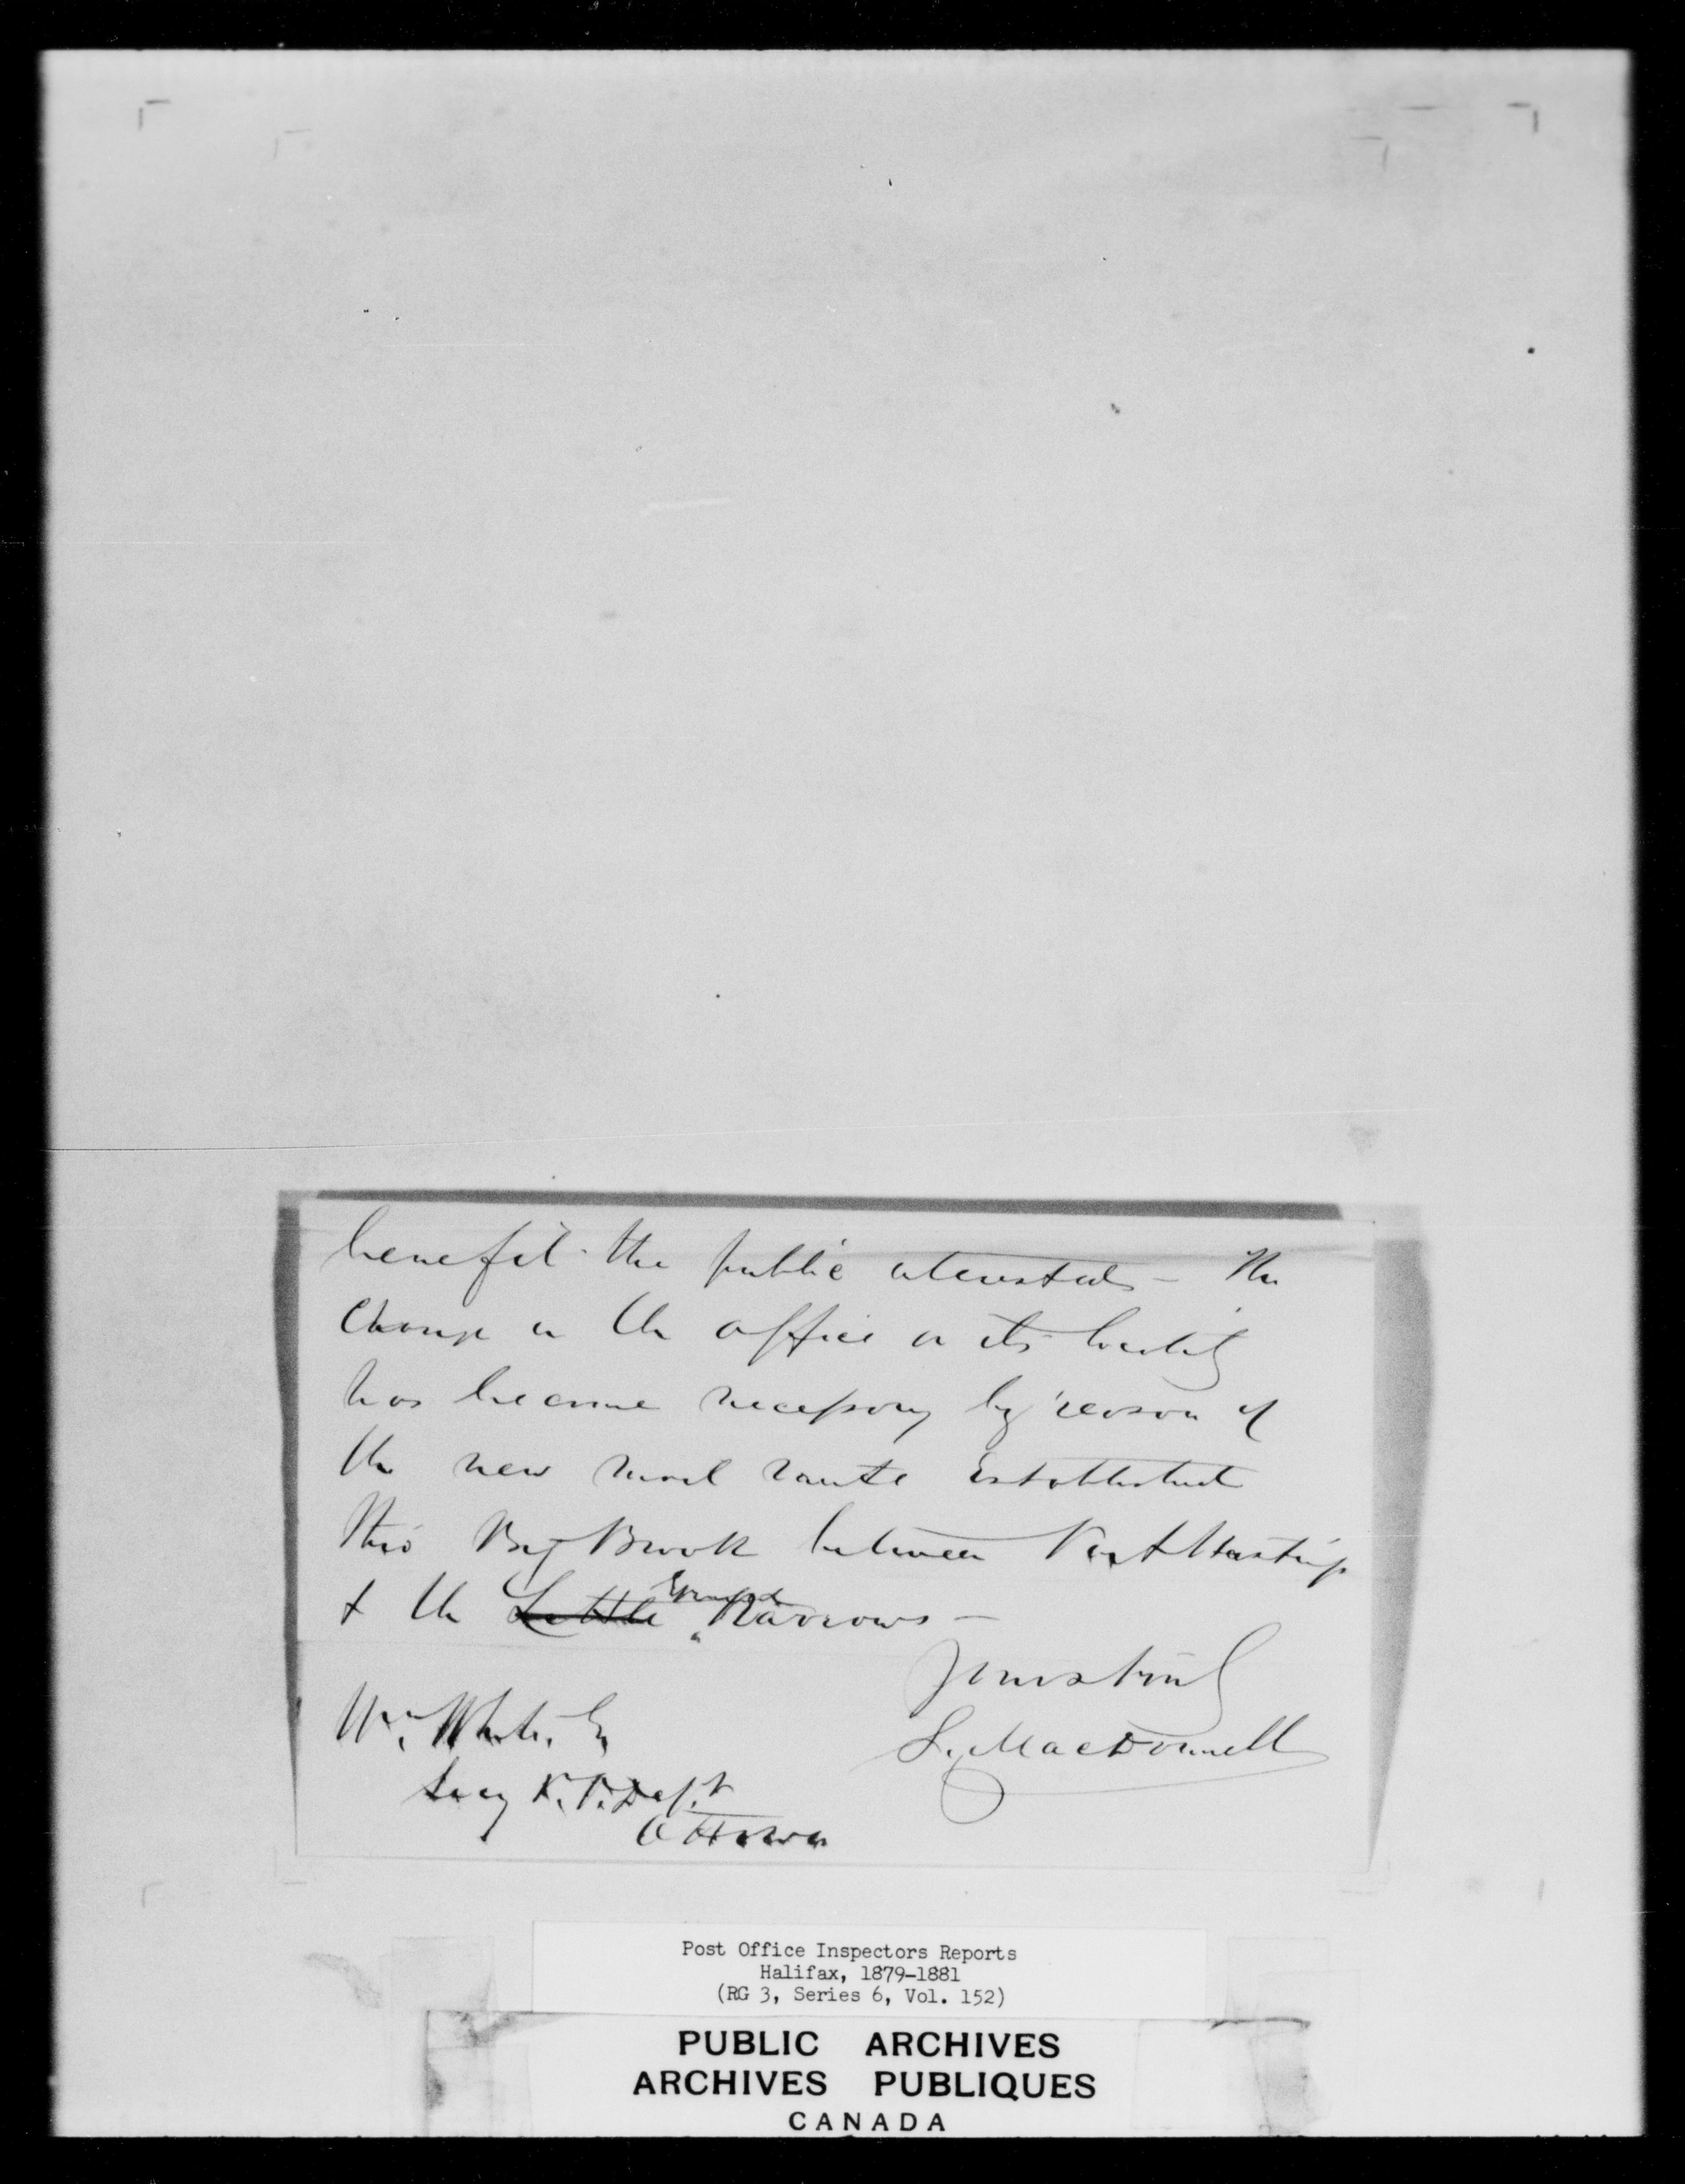 benefit the public interested – The
Change in the office or its locality
has become necessary by reason of
the new mail route established
thro Big Brook between Port Hastings
& the Little Grand Narrows –
Yours truly
S. MacDonnell
Wm. White, Esq
Secy P. O. Dept
Ottawa
Post Office Inspectors Reports
Halifax, 1879-1881
(RG 3, Series 6, Vol. 152)
PUBLIC ARCHIVES
ARCHIVES PUBLIQUES
CANADA